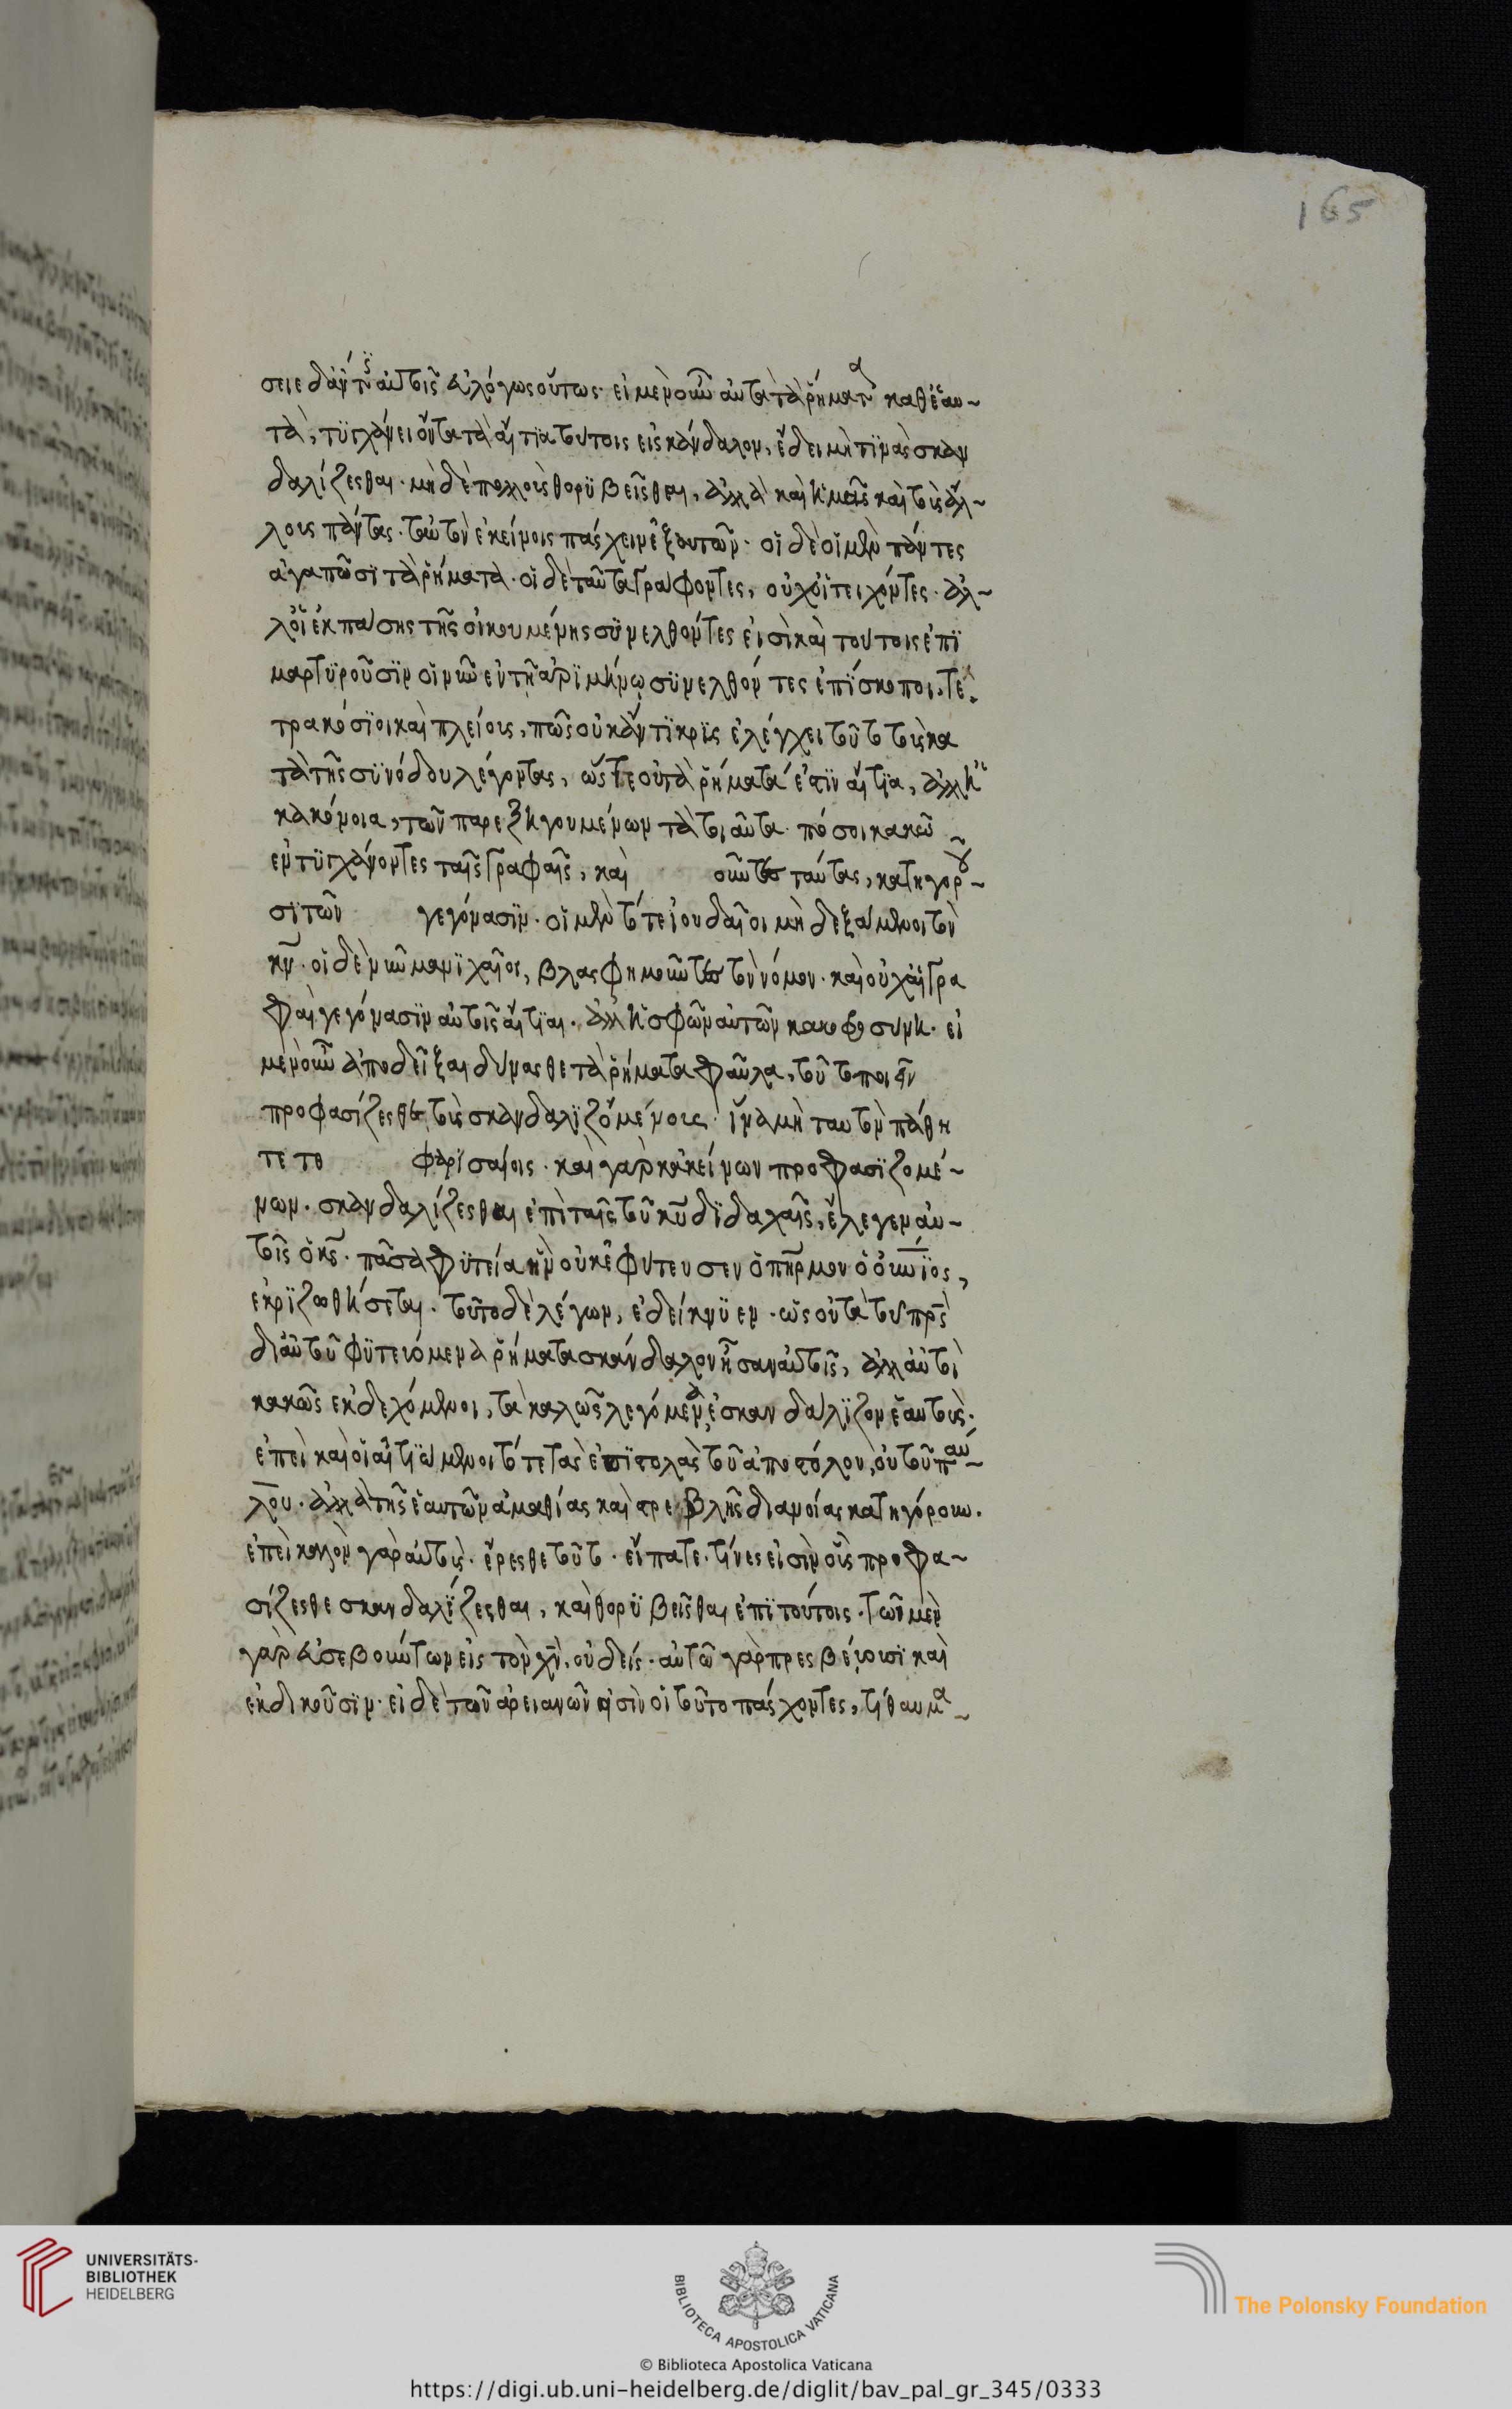 165
σειεδὰν τις αὐτοῖς ἀλόγως οὕτως· εἰ μὲν οὖν αὐτὰ τὰ ῥήματα καθ' ἑαυ~
τὰ, τϋγχάνει ὄντα τὰ αἴτϊα τούτοις εἰσκάνδαλον, ἔδει μὴ τϊμὰς σκαν
δαλίζεσθαι· μὴ δὲ πολλοὺς θορϋβεῖσθαι, ἀλλὰ καὶ ἡμᾶς καὶ τοὺς ἄλ~
λους πάντας· ταὐτὸν ἐκείνοις πάσχειν ἐξ αυτῶν· οἱ δὲ οἱ μὲν πάντες
ἀγαπῶσϊ τὰ ῥήματα· οἱ δὲ ταῦτα γράφοντες, οὐχ οἱ τειχόντες· ἀλ~
λ' οἱ ἐκ πάσης τῆς οἰκουμένης συνελθόντες εἰσὶ καὶ τούτοις ἐπϊ
μαρτϋροῦσϊν οἱ νῦν ἐν τῇ ἀρϊμήνῳ σϋνελθόντες ἐπΐσκοποι, τε
τρακόσϊοι καὶ πλείους, πῶς οὐκ ἄντϊκρϊς ἐλέγχει τοῦτο τοὺς κα
τὰ τῆς σϋνόδου λέγοντας, ὥστε οὐ τὰ ῥήματά ἐστϊν αἴτϊα, ἀλλ' ἡ
κακόνοια, τῶν παρεξηγουμένων τὰ τοιαῦτα· πόσοι κακῶ
ἐντϋγχάνοντες ταῖς γραφαῖς, καὶ οὖν τες ταύτας, κατηγορ~
σϊ τῶν γεγόνασϊν· οἱ μὲν τότε ἰουδαῖοι μὴ δεξάμενοι τὸν
κν· οἱ δὲ νῦν μανϊχαῖοι, βλασφημοῦντες τὸν νόμον· καὶ οὐχ αἱ γρα
φαὶ γεγόνασϊν αὐτοῖς αἴτϊαι· ἀλλ' ἡ σφῶν αὐτῶν κακοφροσυνη· εἰ
μὲν οὖν ἀποδεῖξαι δύνασθε τὰ ῥήματα φαῦλα, τοῦτο ποιεῖν
προφασίζεσθε τοὺς σκανδαλϊζομένους· ἵνα μὴ ταυτὸν πάθη
τε το φαρϊσαίοις· καὶ γὰρ κἀκείνων προφασϊζομέ~
νων· σκανδαλίζεσθαι ἐπὶ ταῖς τοῦ κυ δϊδαχαῖς, ἔλεγεν αὐ~
τοῖς ὁ κς· πᾶσα φϋτεία ἣν οὐκ ἐφύτευσεν ὁ πηρ μου ὁ οὐνιος,
ἐκρϊζωθήσεται· τοῦτο δὲ λέγων, ἐδείκνϋεν· ὡς οὐ τὰ τοῦ πρς
δι' αὐτοῦ φϋτευόμενα ῥήματα σκάνδαλον ἦσαν αὐτοῖς, ἀλλ' αὐτοὶ
κακῶς ἐκδεχόμενοι, τὰ καλῶς λεγόμενα, ἐσκανδάλϊζον ἑαυτοὺς·
ἐπεὶ καὶ οἱ αἰτϊώμενοι τότε τὰς ἐπϊστολὰς τοῦ ἀποστόλου, οὐ τοῦ παύ~
λου· ἀλλὰ τῆς ἑαυτῶν ἀμαθίας καὶ στρεβλῆς διανοίας κατηγόρουν.
ἐπεὶ καλὸν γὰρ αὐτοὺς· ἔρεσθε τοῦτο· εἴπατε· τίνες εἰσὶν οὓς προφα~
σίζεσθε σκανδαλΐζεσθαι, καὶ θορϋβεῖσθαι ἐπϊ τούτοις· τῶν μὲν
γὰρ ἀσεβούντων εἰς τὸν χν, οὐδείς· αὐτῶ γὰρ πρεσβεύουσϊ καὶ
ἐκδικοῦσϊν· εἰ δὲ τῶν ἀρειανῶν εἰσὶν οἱ τοῦτο πάσχοντες, τί θαυμα~
UNIVERSITÄTS-
BIBLIOTHEK
HEIDELBERG
BIBLIOTECA APOSTOLICA VATICANA
The Polonsky Foundation
© Biblioteca Apostolica Vaticana
https://digi.ub.uni-heidelberg.de/diglit/bav_pal_gr_345/0333